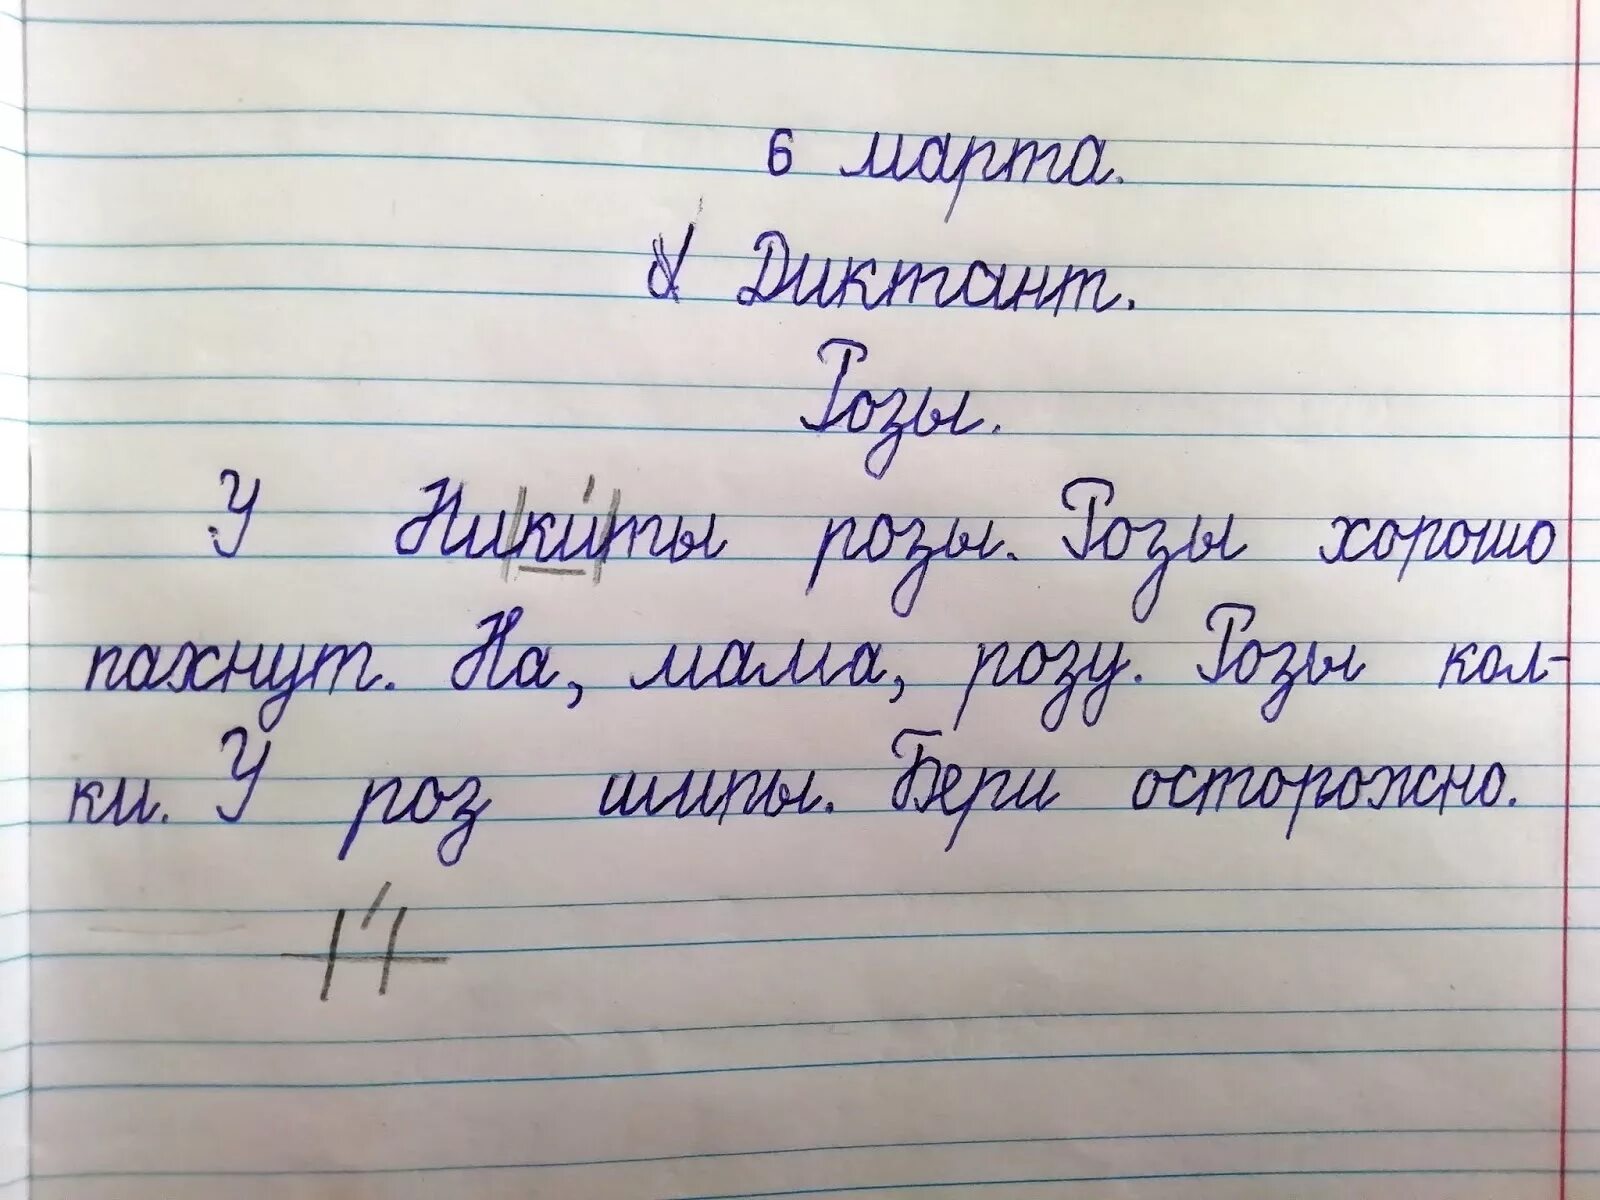 6 марта.
Диктант.
Розы.
У Никиты розы. Розы хорошо
пахнут. На, мама, розу. Розы кол-
ки. У роз шипы. Бери осторожно.